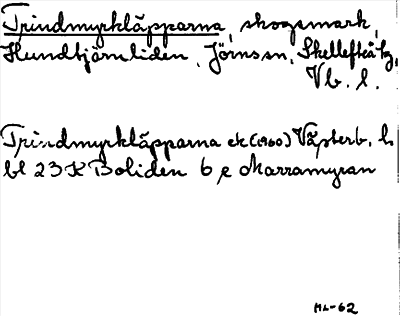 Trindmyrkläpparna, skogsmark,
Hundtjärnliden, Jörns sn, Skellefteå tg,
Vb. l.
Trindmyrkläpparna ek (1960) Västerb. l.
bl 23 K Boliden 6 e Marramyran
ML-62